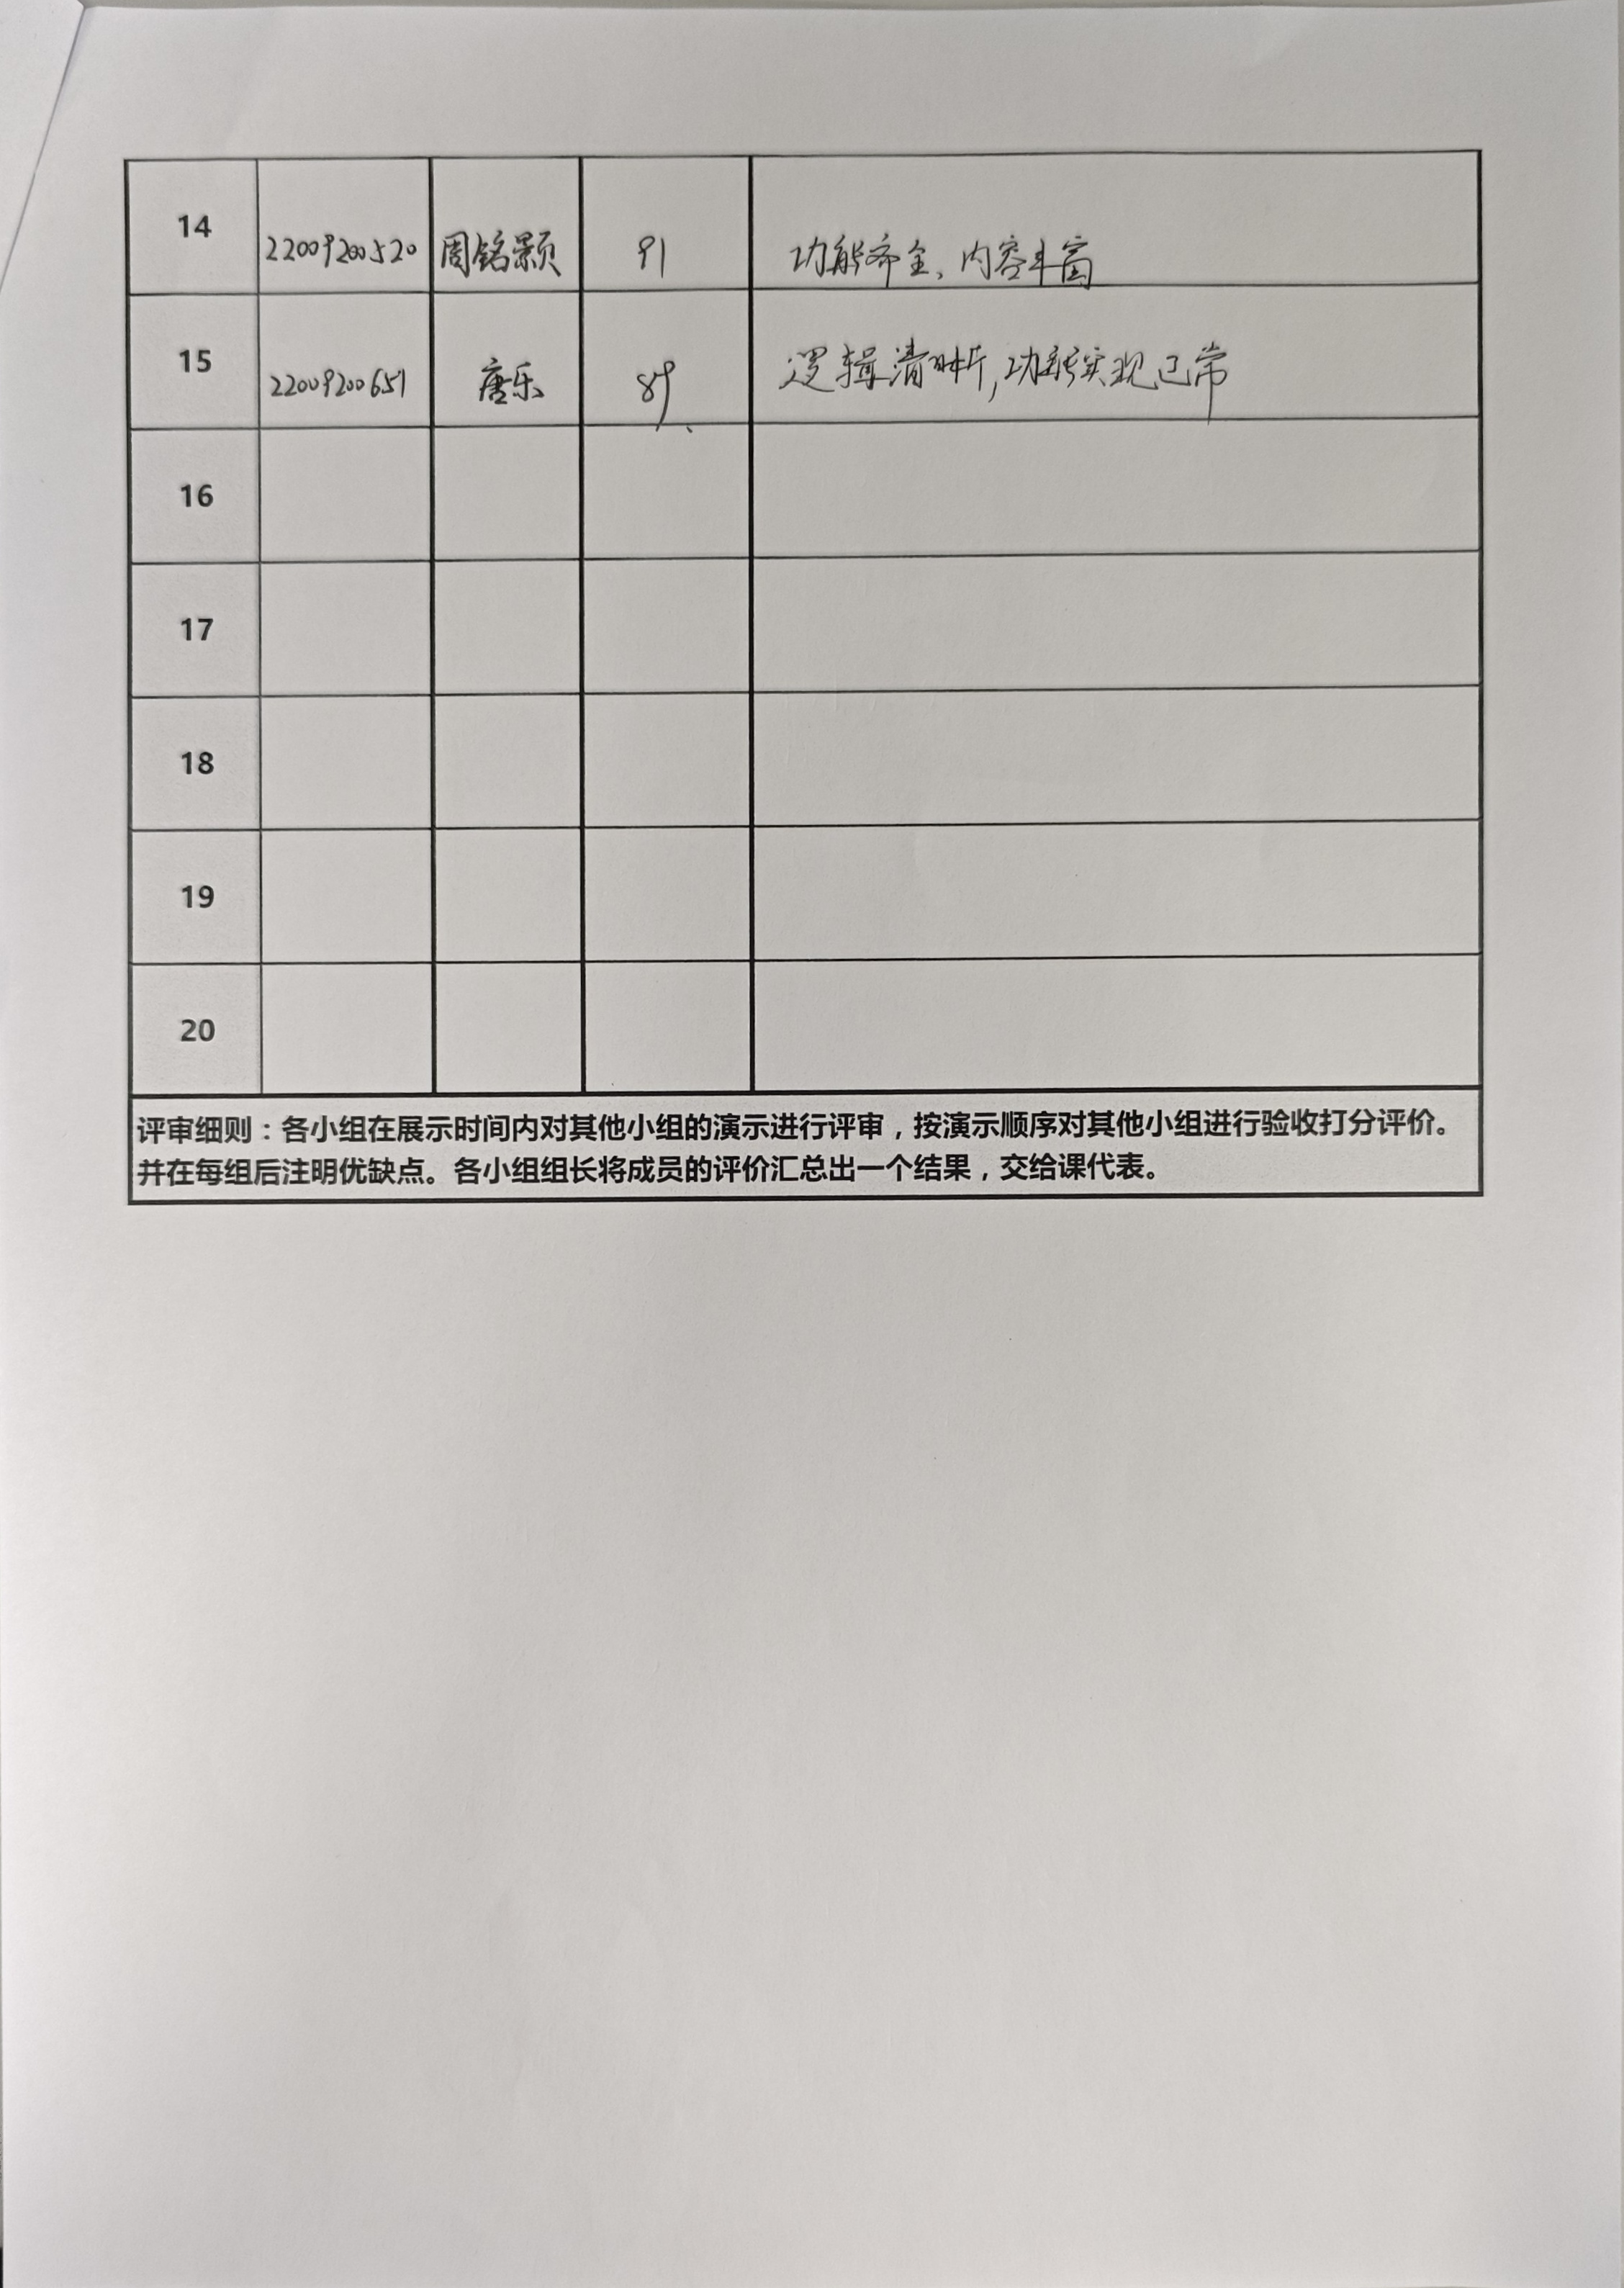 14 22009200520 周铭颢 91 功能齐全、内容丰富
15 22009200651 唐乐 89 逻辑清晰,功能实现正常
16
17
18
19
20
评审细则：各小组在展示时间内对其他小组的演示进行评审，按演示顺序对其他小组进行验收打分评价。
并在每组后注明优缺点。各小组组长将成员的评价汇总出一个结果，交给课代表。